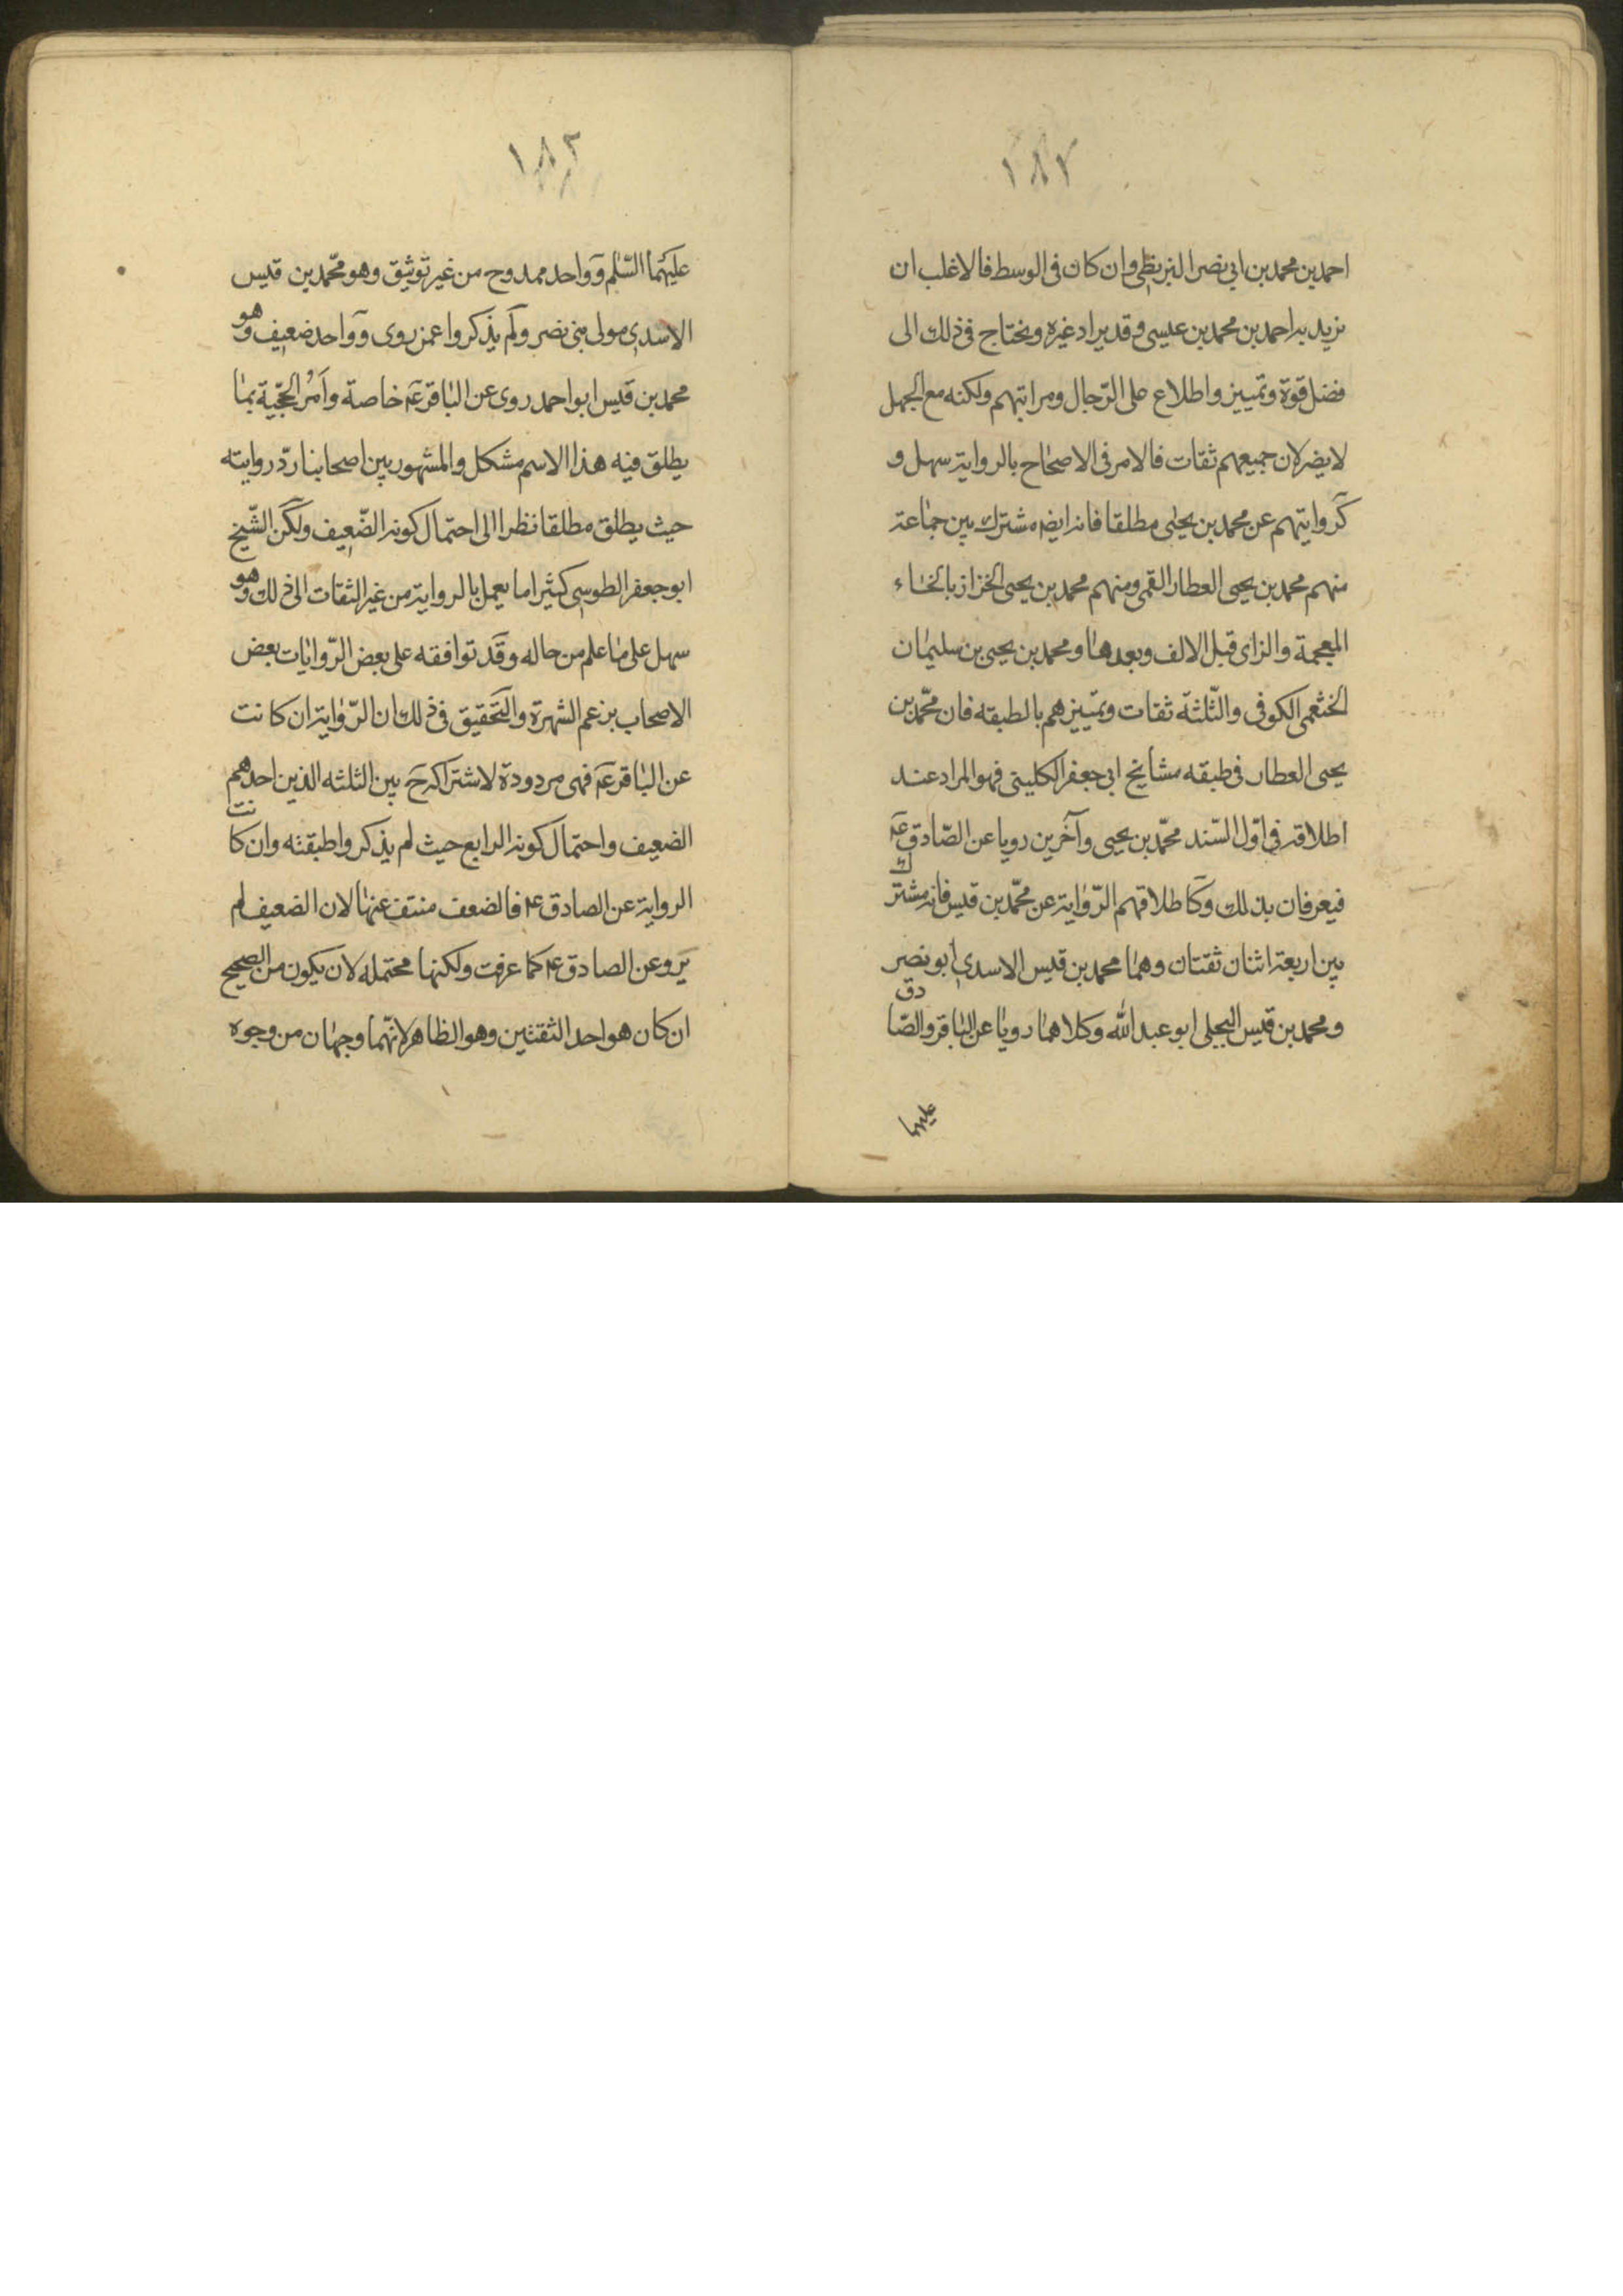 ١٨٢
احمد بن محمد بن ابي نصر البزنطي وان كان في الوسط فالاغلب ان
يريد به احمد بن محمد بن عيسى وقد يراد غيره ويحتاج في ذلك الى
فضل قوة وتمييز واطلاع على الرّجال ومراتبهم ولكنه مع الجهل
لا يضر لان جميعهم ثقات فالامر في الاصحاح بالرواية سهل و
كروايتهم عن محمد بن يحيى مطلقا فانه ايضه مشترك بين جماعة
منهم محمد بن يحيى العطار القمي ومنهم محمد بن يحيى الخزاز بالخاء
المعجمة والزاى قبل الالف وبعدها ومحمد بن يحيى بن سليمان
الخثعمى الكوفى والثّلثة ثقات وتمييزهم بالطبقه فان محمّد بن
يحيى العطار فى طبقه مشايخ ابى جعفر الكلينى فهو المراد عند
اطلاقه فى اوّل السّند محمّد بن يحيى وآخرين رويا عن الصّادق عَم
فيعرفان بذلك وكاطلاقهم الرّواية عن محمّد بن قيس فانه مشترك
بين اربعة اثنان ثقتان وهما محمد بن قيس الاسدي ابو نصر
ومحمد بن قيس البجلى ابو عبد الله وكلاهما رويا عن الباقر والصّادق
عليهما
١٨٢
عليهما السّلم وواحد ممدوح من غير توثيق وهو محمّد بن قيس
الاسدي مولى بنى نصر ولم يذكروا عمن روى وواحد ضعيف وهو
محمد بن قيس ابو احمد روى عن الباقر عَم خاصة وامرُ الحجّية بما
يطلق فيه هذا الاسم مشكل والمشهور بين اصحابنا ردّ روايته
حيث يطلق مطلقا نظرا الى احتمال كونه الضّعيف ولكن الشّيخ
ابو جعفر الطوسى كثيرا ما يعمل بالرواية من غير التفات الى ذلك وهو
سهل على ما علم من حاله وقد توافقه على بعض الرّوايات بعض
الاصحاب بزعم الشهرة والتحقيق فى ذلك ان الرّواية ان كانت
عن الباقر عَم فهى مردودة لاشتراكه حَ بين الثلثه الذين احدهم
الضعيف واحتمال كونه الرابع حيث لم يذكروا طبقته وان كانت
الرواية عن الصادق عم فالضعف منتف عنها لان الضعيف لم
يَرو عن الصادق عم كما عرفت ولكنها محتمله لان يكون من الصحيح
ان كان هو احد الثقتين وهو الظاهر لانّهما وجهان من وجوه